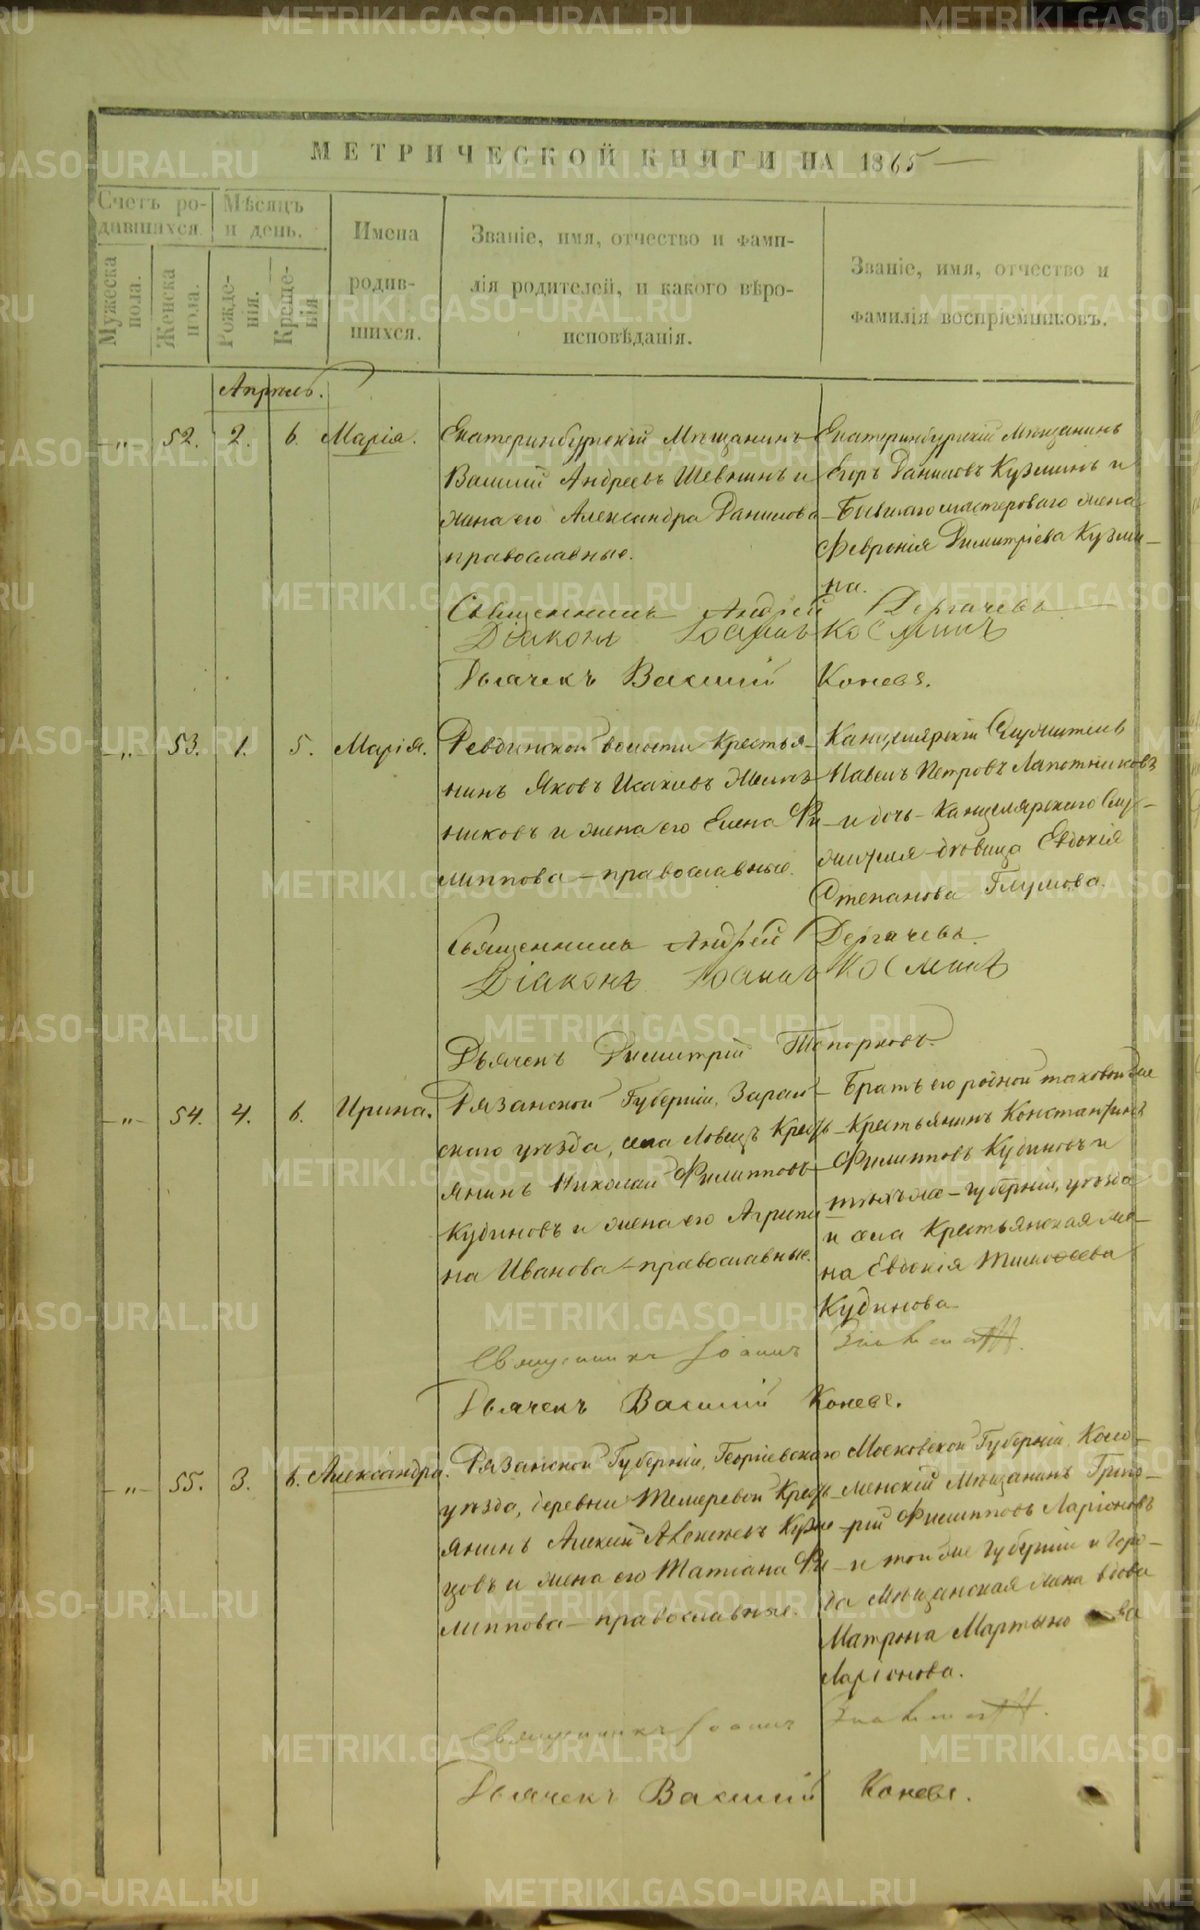 МЕТРИЧЕСКОЙ КНИГИ НА 1865
Счетъ ро-
дившихся
Мѣсяцъ
и день.
Мужеска
пола.
Женска
пола.
Рожде-
нія.
Креще-
нія
Имена
родив-
шихся.
Званіе, имя, отчество и фами-
лія родителей, и какого вѣро-
исповѣданія.
Званіе, имя, отчество и
фамилія воспріемниковъ.
Апрѣль.
" 52. 2. 6. Марія.
Екатеринбургскій Мѣщанинъ
Василій Андреевъ Шевнинъ и
жена его Александра Данилова
православные.
Екатеринбургскій Мѣщанинъ
Егоръ Даниловъ Кузминъ и
Бывшаго мастероваго жена
Февронія Димитріева Кузми-
на.
Священникъ Андрей Дергачевъ
Діаконъ Іоаннъ Косминъ
Дьячекъ Василій Коневъ.
" 53. 1. 5. Марія.
Ревдинской волости Крестья-
нинъ Яковъ Исакиевъ
никовъ и жена его Елена Фи-
липпова – православные.
Канцелярскій Служитель
Павелъ Петровъ Лапотниковъ
и дочь Канцелярскаго Слу-
жителя дѣвица Евдокія
Степанова Глумова.
Священникъ Андрей Дергачевъ
Діаконъ Іоаннъ Косминъ
Дьячекъ Димитрій Топорковъ.
" 54. 4. 6. Ирина.
Рязанской Губерніи, Зарай-
скаго уѣзда, села Ловецъ Кресть-
янинъ Николай Филипповъ
Кудиновъ и жена его Агрипи
на Иванова – православные.
Братъ его родной таковой же
Крестьянинъ Константинъ
Филипповъ Кудиновъ и
тѣхъ же – губерніи, уѣзда
и села Крестьянская же-
на Евдокія Тимофеева
Кудинова
Священникъ Іоаннъ
Дьячекъ Василій Коневъ.
" 55. 3. 6. Александра.
Рязанской Губерніи, Георгіевскаго
уѣзда, деревни Темеревой Кресть-
янинъ Алексей Алексеевъ Кузне
цовъ и жена его Татіана Фи-
липпова – православные.
Московской Губерніи, Коло-
менскій Мѣщанинъ Григо-
рій Филипповъ Ларіоновъ
и той же губерніи и горо-
да Мѣщанская жена вдова
Матрена Мартынова
Ларіонова.
Священникъ Іоаннъ
Дьячекъ Василій Коневъ.
METRIKI.GASO-URAL.RU